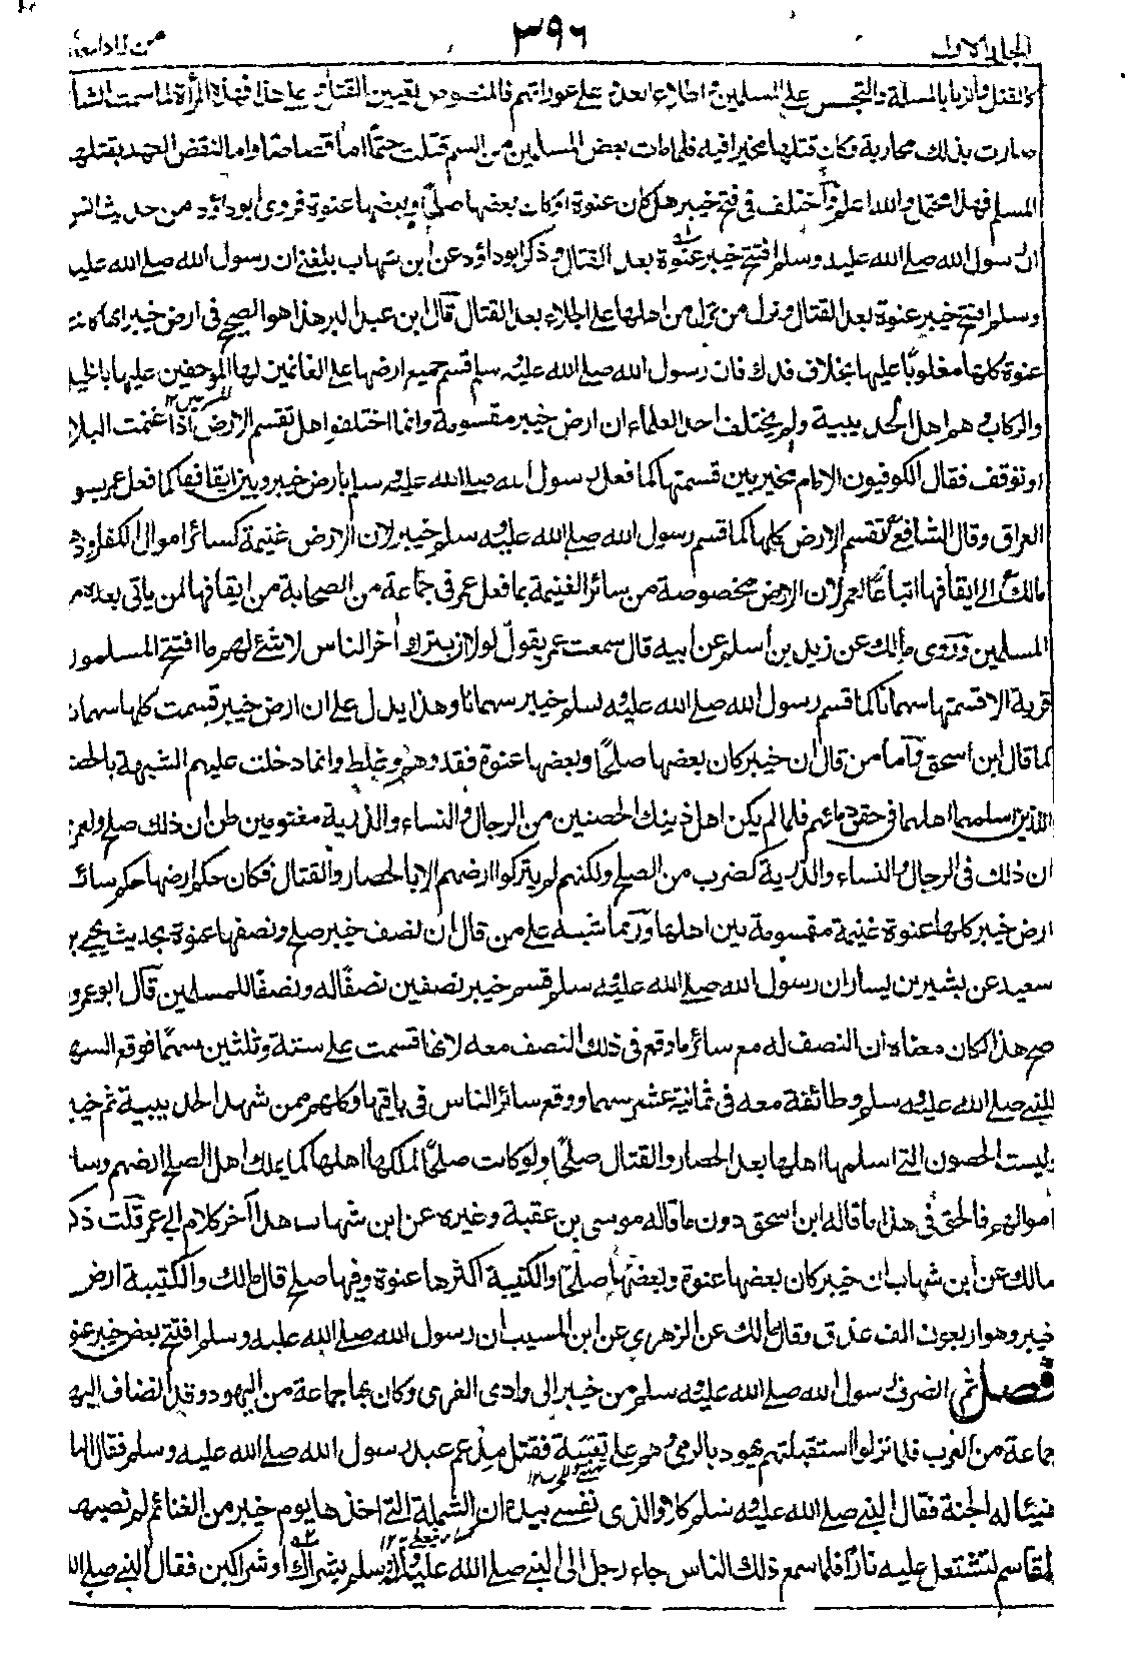 المجلد الاول ٣٩٦ من زاد المعاد
كالقتل والزنا بالمسلمة والتجسس على المسلمين واطلاع العدو على عوراتهم فالمنصوص تعيين القتل وعلى هذا فهذه المرأة لما سمت الشا
صارت بذلك محاربة وكان قتلها مخيرا فيه فلما مات بعض المسلمين من السم قتلت حتمًا اما قصاصا واما لنقض العهد بقتلها
المسلم فهذا محتمل والله اعلم وآختلف فى فتح خيبر هل كان عنوة او كان بعضها صلحًا وبعضها عنوة فروى ابو داؤد من حديث انس
ان رسول الله صلے الله عليه وسلم افتتح خيبر عنوة بعد القتال وذكر ابو داؤد عن ابن شهاب بلغنى ان رسول الله صلے الله عليه
وسلم افتتح خيبر عنوة بعد القتال ونزل من نزل من اهلها على الجلاء بعد القتال قآل ابن عبد البر هذا هو الصحيح فى ارض خيبر انها كانت
عنوة كلها مغلوبًا عليها بخلاف فدك فان رسول الله صلے الله عليه وسلم قسم جميع ارضها على الغانمين لها الموجفين عليها بالخيل
والركاب وهم اهل الحديبية ولم يختلف احد العلماء ان ارض خيبر مقسومة وانما اختلفوا هل تقسم الارض اذا غنمت البلاد
او توقف فقال الكوفيون الامام مخير بين قسمتها كما فعل رسول الله صلے الله عليه وسلم بارض خيبر وبين ايقافها كما فعل عمر بسو
العراق وقال الشافعى تقسم الارض كلها كما قسم رسول الله صلے الله عليه وسلم خيبر لان الارض غنيمة كسائر اموال الكفار وذه
مالك الى ايقافها اتباعًا لعمر لان الارض مخصوصة من سائر الغنيمة بما فعل عمر فى جماعة من الصحابة من ايقافها لمن ياتى بعده من
المسلمين وروى مالك عن زيد بن اسلم عن ابيه قال سمعت عمر يقول لولا ان يترك آخر الناس لا شئ لهم ما افتتح المسلمون
قرية الا قسمتها سهمانا كما قسم رسول الله صلے الله عليه وسلم خيبر سهمانا وهذا يدل على ان ارض خيبر قسمت كلها سهمانا
كما قال ابن اسحق وآما من قال ان خيبر كان بعضها صلحًا وبعضها عنوة فقد وهم وغلط وانما دخلت عليهم الشبهة بالحصنين
اللذين اسلمهما اهلهما فى حقن دمائهم فلما لم يكن اهل ذينك الحصنين من الرجال والنساء والذرية مغنومين ظن ان ذلك صلح ولعمرى
ان ذلك فى الرجال والنساء والذرية كضرب من الصلح ولكنهم لم يتركوا ارضهم الا بالحصار والقتال فكان حكم ارضها حكم سائر
ارض خيبر كلها عنوة غنيمة مقسومة بين اهلها ورُبما شبه على من قال ان نصف خيبر صلح ونصفها عنوة بحديث يحيى بن
سعيد عن بشير بن يسار ان رسول الله صلے الله عليه وسلم قسم خيبر نصفين نصفًا له ونصفًا للمسلمين قآل ابو عمرو
صح هذا لكان معناه ان النصف له مع سائر ما وقع فى ذلك النصف معه لانها قسمت على ستة وثلثين سهمًا فوقع السهم
للنبى صلے الله عليه وسلم وطائفة معه فى ثمانية عشر سهما ووقع سائر الناس فى باقيها وكلهم ممن شهد الحديبية ثم خيبر
وليست الحصون التى اسلمها اهلها بعد الحصار والقتال صلحًا ولو كانت صلحًا لملكها اهلها كما يملك اهل الصلح ارضهم وسائر
اموالهم فالحق فى هذا ما قاله ابن اسحق دون ما قاله موسى بن عقبة وغيره عن ابن شهاب هذا آخر كلام ابى عمر قلت ذكر
مالك عن ابن شهاب ان خيبر كان بعضها عنوة وبعضها صلحًا والكتيبة اكثرها عنوة وفيها صلح قال مالك والكتيبة ارض
خيبر وهو اربعون الف عذق وقال مالك عن الزهرى عن ابن المسيب ان رسول الله صلے الله عليه وسلم افتتح بعض خيبر عنوة
فصل ثم انصرف رسول الله صلے الله عليه وسلم من خيبر الى وادى القرى وكان بها جماعة من اليهود وقد انضاف اليهم
جماعة من العرب فلما نزلوا استقبلتهم يهود بالرمى وهم على تعبية فقتل مدعم عبد رسول الله صلے الله عليه وسلم فقال النا
هنيئا له الجنة فقال النبى صلے الله عليه وسلم كلا والذى نفسى بيده ان الشملة التى اخذها يوم خيبر من الغنائم لم تصبها
المقاسم لتشتعل عليه نارًا فلما سمع ذلك الناس جاء رجل الى النبى صلے الله عليه وسلم بشراك او شراكين فقال النبى صلے الله